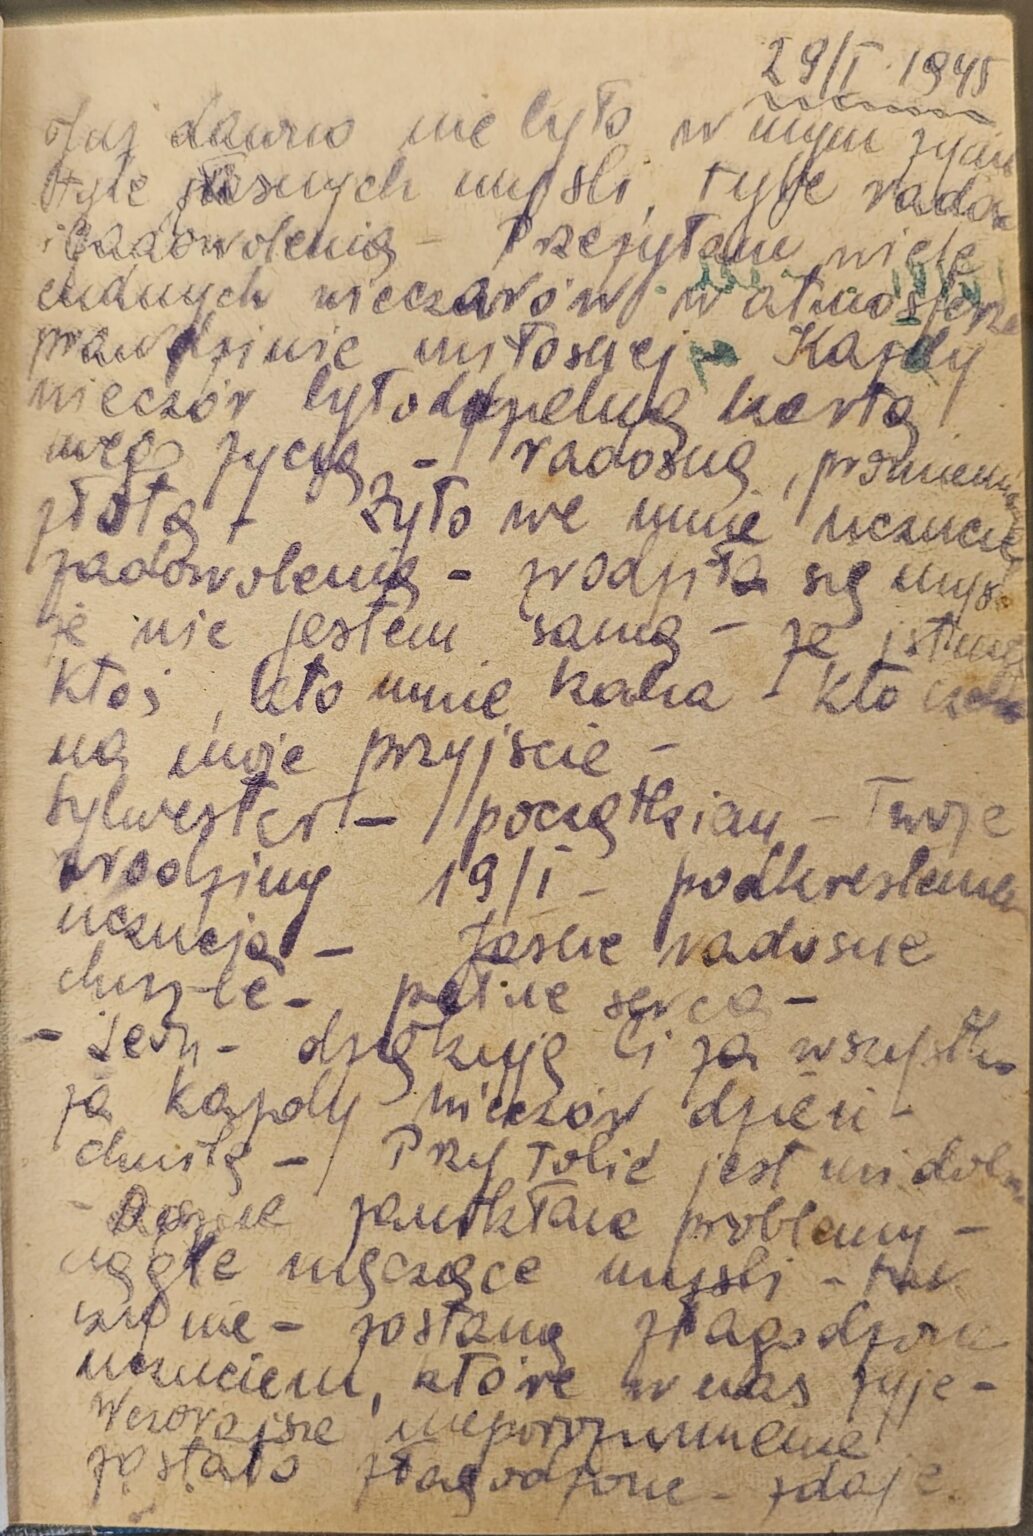 29/I 1945
Już dawno nie było w mym życiu
tyle jasnych myśli, tyle
zadowolenia - Przeżyłam wiele
cudnych wieczorów w atmosferze
prawdziwie miłosnej - Każdy
wieczór był odrębną kartą
mego życia - radosną,
złotą - Żyło we mnie uczucie
zadowolenia - zrodziła się
że nie jestem sama - że
ktoś, kto mnie kocha - kto
na moje przyjście -
Sylwester - początkiem - Twoje
urodziny 19/I - podkreślenie
uczucia - Jasne radosne
chwile - pełne serca -
- dziękuję Ci za wszystko
za każdy wieczór dzień -
chwilę - Przy Tobie jest mi dobrze
- zawikłane problemy -
ciągle męczące myśli - tak
czy nie - zostaną złagodzone
uczuciem, które w nas żyje -
Wczorajsze nieporozumienie
zostało złagodzone - zdaje